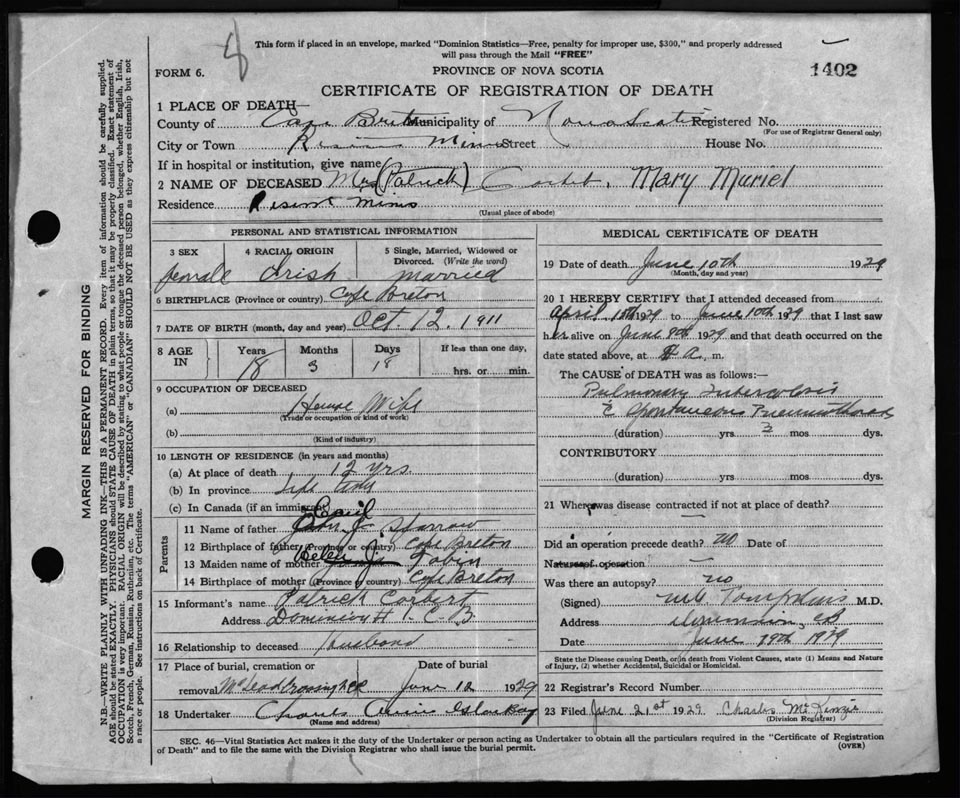 This form if placed in an envelope, marked "Dominion Statistics—Free, penalty for improper use, $300," and properly addressed
will pass through the Mail "FREE"
FORM 6.
PROVINCE OF NOVA SCOTIA
1402
CERTIFICATE OF REGISTRATION OF DEATH
1 PLACE OF DEATH—
County of Cape Breton Municipality of Nova Scotia Registered No.
(For use of Registrar General only)
City or Town Mines Street House No.
If in hospital or institution, give name
2 NAME OF DECEASED Mrs (Patrick) Corbett, Mary Muriel
Residence Mines
(Usual place of abode)
PERSONAL AND STATISTICAL INFORMATION
3 SEX 4 RACIAL ORIGIN 5 Single, Married, Widowed or
Divorced. (Write the word)
female Irish married
6 BIRTHPLACE (Province or country) Cape Breton
7 DATE OF BIRTH (month, day and year) Oct. 12. 1911
8 AGE IN Years Months Days If less than one day,
18 3 18 hrs. or min.
9 OCCUPATION OF DECEASED
(a) House Wife
(Trade or occupation or kind of work)
(b)
(Kind of industry)
10 LENGTH OF RESIDENCE (in years and months)
(a) At place of death 12 yrs
(b) In province Life
(c) In Canada (if an immigrant)
Parents
11 Name of father J. Sparrow
12 Birthplace of father (Province or country) Cape Breton
13 Maiden name of mother Helen Tobin
14 Birthplace of mother (Province or country) Cape Breton
15 Informant's name Patrick Corbett
Address Dominion C. B.
16 Relationship to deceased Husband
17 Place of burial, cremation or Date of burial
removal June 12 1929
18 Undertaker Glace Bay
(Name and address)
MEDICAL CERTIFICATE OF DEATH
19 Date of death June 10th 1929
(Month, day and year)
20 I HEREBY CERTIFY that I attended deceased from
April 1929 to June 10th 1929 that I last saw
her alive on June 8th 1929 and that death occurred on the
date stated above, at a, m.
The CAUSE of DEATH was as follows:—
Pulmonary Tuberculosis
c Spontaneous Pneumothorax
(duration) yrs 3 mos dys.
CONTRIBUTORY
(duration) yrs. mos. dys.
21 Where was disease contracted if not at place of death?
Did an operation precede death? no Date of
Nature of operation
Was there an autopsy? no
(Signed) Tompkins M.D.
Address Dominion, CB
Date June 19th 1929
State the Disease causing Death, or, in death from Violent Causes, state (1) Means and Nature
of Injury, (2) whether Accidental, Suicidal or Homicidal.
22 Registrar's Record Number
23 Filed June 21st 1929. Charles McKenzie
(Division Registrar)
SEC. 46—Vital Statistics Act makes it the duty of the Undertaker or person acting as Undertaker to obtain all the particulars required in the "Certificate of Registration
of Death" and to file the same with the Division Registrar who shall issue the burial permit. (OVER)
MARGIN RESERVED FOR BINDING
N.B.—WRITE PLAINLY WITH UNFADING INK—THIS IS A PERMANENT RECORD. Every item of information should be carefully supplied.
AGE should be stated EXACTLY. PHYSICIANS should STATE CAUSE OF DEATH in plain terms, so that it may be properly classified. Exact statement of
OCCUPATION is very important. RACIAL ORIGIN will be described by stating to what people or tongue the deceased person belonged, whether English, Irish,
Scotch, French, German, Russian, Ruthenian, etc. The terms "AMERICAN" or "CANADIAN" SHOULD NOT BE USED as they express citizenship but not
a race or people. See instructions on back of Certificate.